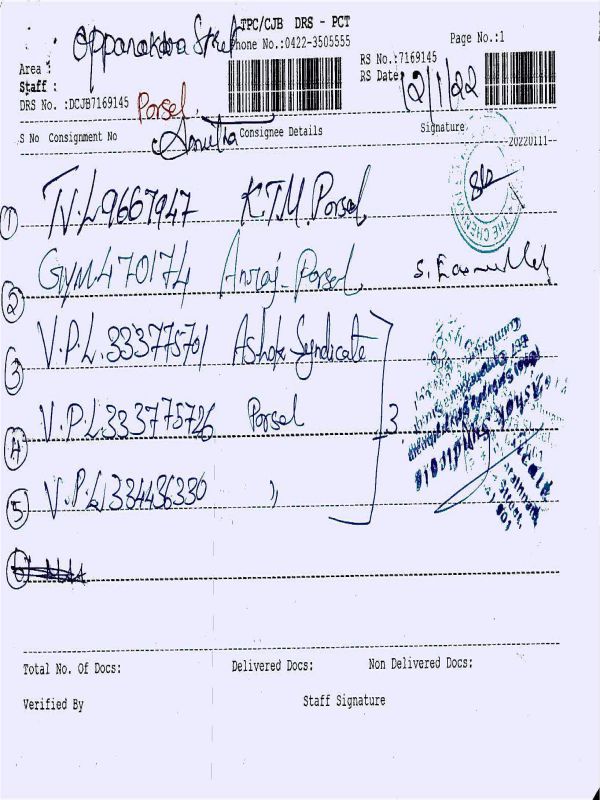 TPC/CJB DRS - PCT
Oppanakara Street
Phone No.:0422-3505555
Page No.:1
Area :
RS No.:7169145
Staff :
RS Date: 12/1/22
DRS No. :DCJB7169145 Porsel
S No Consignment No Consignee Details Signature
20220111
1 TVL9667947 K.T.M. Porsel
THE CHENNAI
2 GYM470174 Anraj-Porsel
3 V.P.L.333775701 Ashok Syndicate
4 V.P.L333775726 Porsel 3.
Ashok Syndicate
5 V.P.L334436330 "
6
Total No. Of Docs: Delivered Docs: Non Delivered Docs:
Verified By Staff Signature